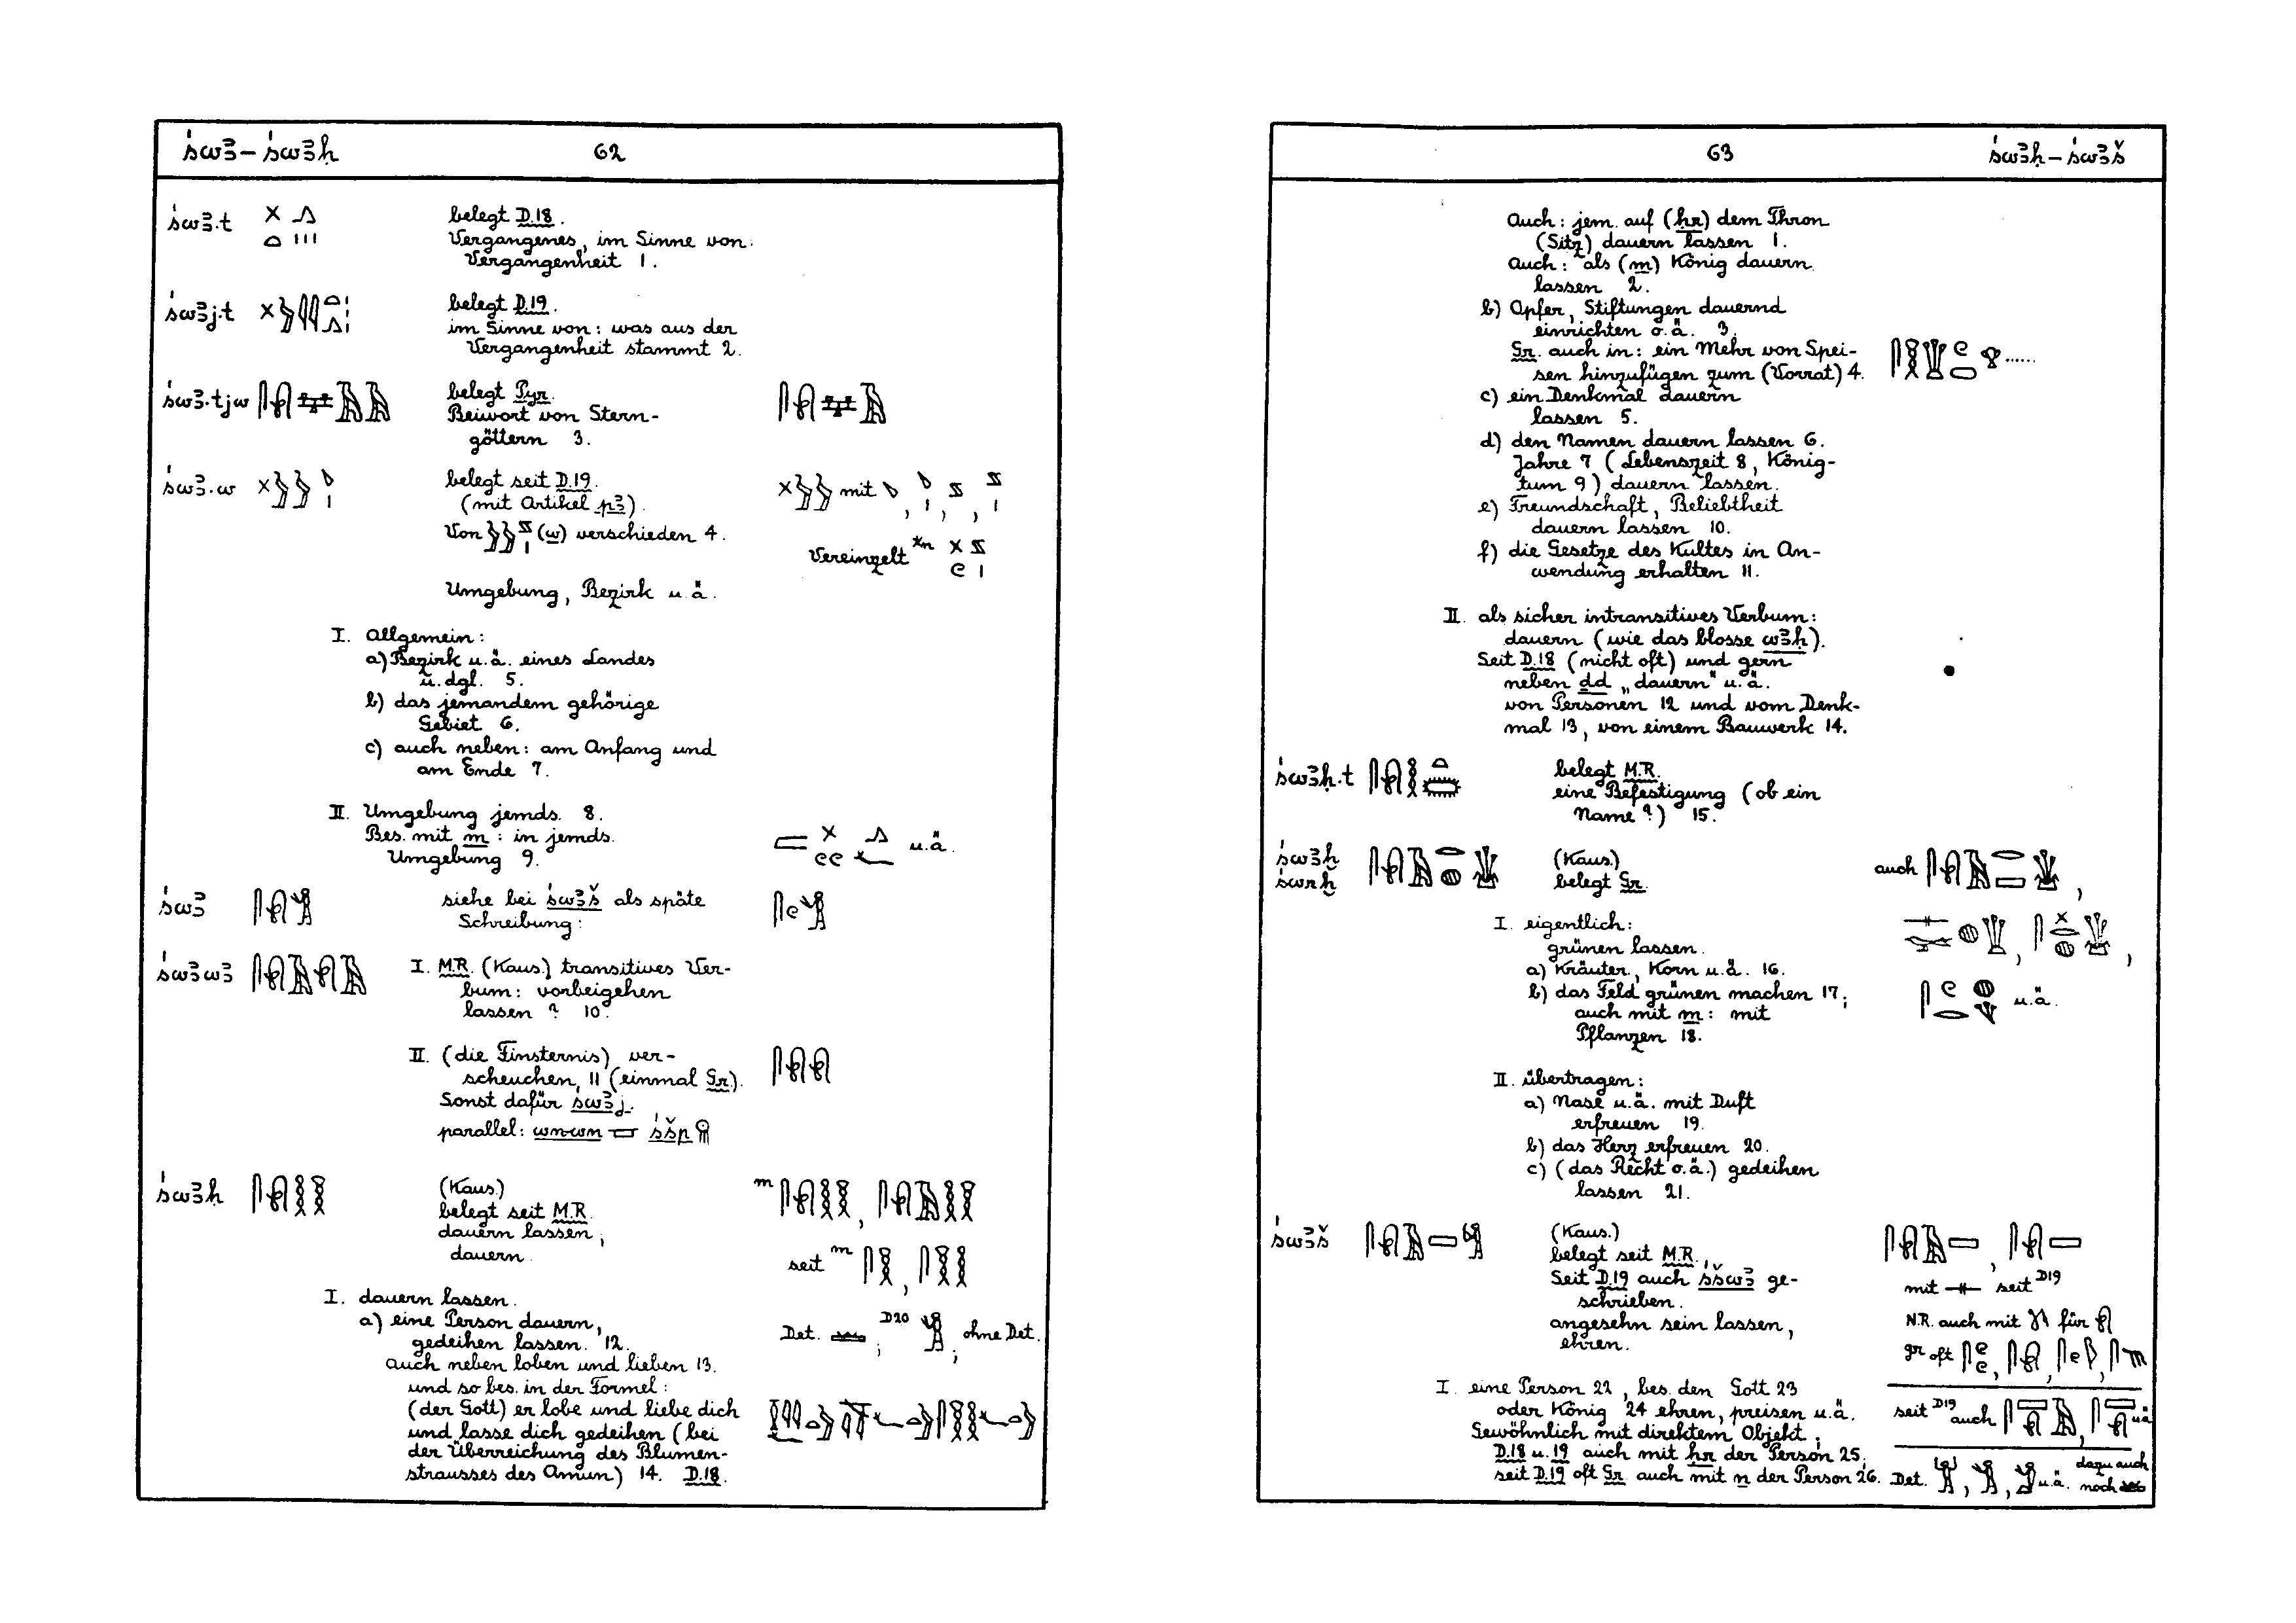 św3 – św3ḥ 62
św3.t belegt D.18.
Vergangenes, im Sinne von:
Vergangenheit 1.
św3j.t belegt D.19.
im Sinne von: was aus der
Vergangenheit stammt 2.
św3.tjw belegt Pyr.
Beiwort von Stern-
göttern 3.
św3.w belegt seit D.19. mit
(mit Artikel p3).
Von (w) verschieden 4.
Vereinzelt
Umgebung, Bezirk u.ä.
I. Allgemein:
a) Bezirk u.ä. eines Landes
u.dgl. 5.
b) das jemandem gehörige
Gebiet 6.
c) auch neben: am Anfang und
am Ende 7.
II. Umgebung jemds. 8.
Bes. mit m: in jemds.
Umgebung 9. u.ä.
św3 siehe bei św3š als späte
Schreibung:
św3w3 I. M.R. (Kaus.) transitives Ver-
bum: vorbeigehen
lassen? 10.
II. (die Finsternis) ver-
scheuchen, 11 (einmal Gr.).
Sonst dafür św3j.
parallel: wn-wn śšp
św3ḥ (Kaus.)
belegt seit M.R.
dauern lassen;
dauern. seit
I. dauern lassen.
a) eine Person dauern,
gedeihen lassen. 12. Det. ; D20 ; ohne Det.
auch neben loben und lieben 13.
und so bes. in der Formel:
(der Gott) er lobe und liebe dich
und lasse dich gedeihen (bei
der Überreichung des Blumen-
strausses des Amun) 14. D.18.
63 św3ḥ – św3š
Auch: jem. auf (ḥr) dem Thron
(Sitz) dauern lassen 1.
Auch: als (m) König dauern
lassen 2.
b) Opfer, Stiftungen dauernd
einrichten o.ä. 3.
Gr. auch in: ein Mehr von Spei-
sen hinzufügen zum (Vorrat) 4.
c) ein Denkmal dauern
lassen 5.
d) den Namen dauern lassen 6.
Jahre 7 (Lebenszeit 8, König-
tum 9) dauern lassen.
e) Freundschaft, Beliebtheit
dauern lassen 10.
f) die Gesetze des Kultes in An-
wendung erhalten 11.
II. als sicher intransitives Verbum:
dauern (wie das blosse w3ḥ).
Seit D.18 (nicht oft) und gern
neben ḏd „dauern" u.ä.
von Personen 12 und vom Denk-
mal 13, von einem Bauwerk 14.
św3ḥ.t belegt M.R.
eine Befestigung (ob ein
Name?) 15.
św3ḫ (Kaus.) auch
śwrḫ belegt Gr.
I. eigentlich:
grünen lassen.
a) Kräuter, Korn u.ä. 16.
b) das Feld grünen machen 17; u.ä.
auch mit m: mit
Pflanzen 18.
II. übertragen:
a) Nase u.ä. mit Duft
erfreuen 19.
b) das Herz erfreuen 20.
c) (das Recht o.ä.) gedeihen
lassen 21.
św3š (Kaus.)
belegt seit M.R.,
Seit D.19 auch śšw3 ge- mit seit D19
schrieben.
angesehn sein lassen, N.R. auch mit für
ehren. gr oft
I. eine Person 22, bes. den Gott 23
oder König 24 ehren, preisen u.ä. seit D19 auch u.ä.
Gewöhnlich mit direktem Objekt;
D.18 u. 19 auch mit ḥr der Person 25;
seit D.19 oft Gr. auch mit n der Person 26. Det. u.ä. dazu auch
noch